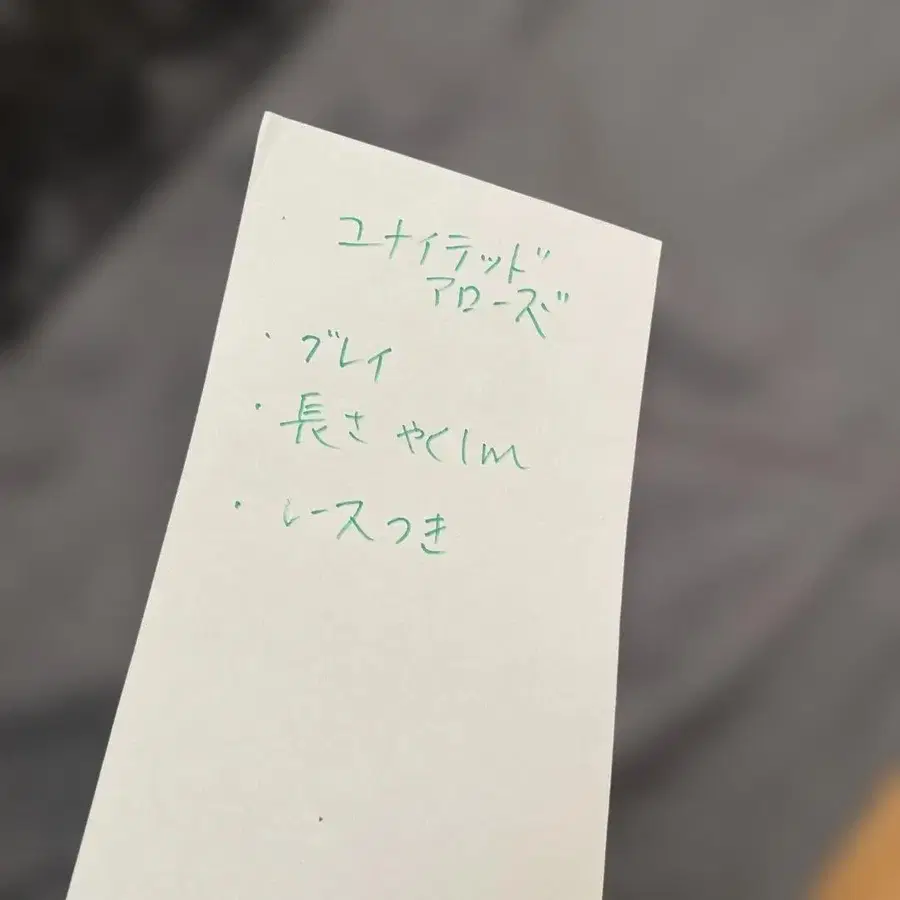 ・ユナイテッド
アローズ
・グレイ
・長さ やく1m
・レースつき